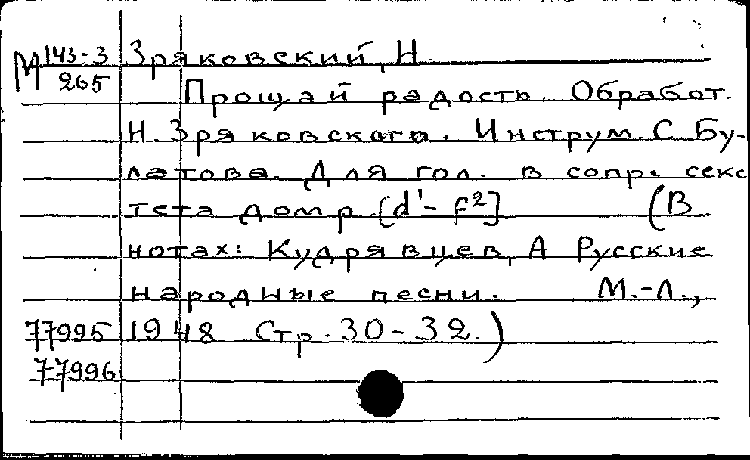 М 143-3 Зряковский, Н
265 Прощай радость. Обработ.
Н. Зряковского. Инструм. С. Бу-
латова. Для гол. в сопр. секс
тета домр [d¹-f²] (В
нотах: Кудрявцев, А Русские
народные песни. М.-Л.,
77995 1948 Стр. 30-32.)
77996